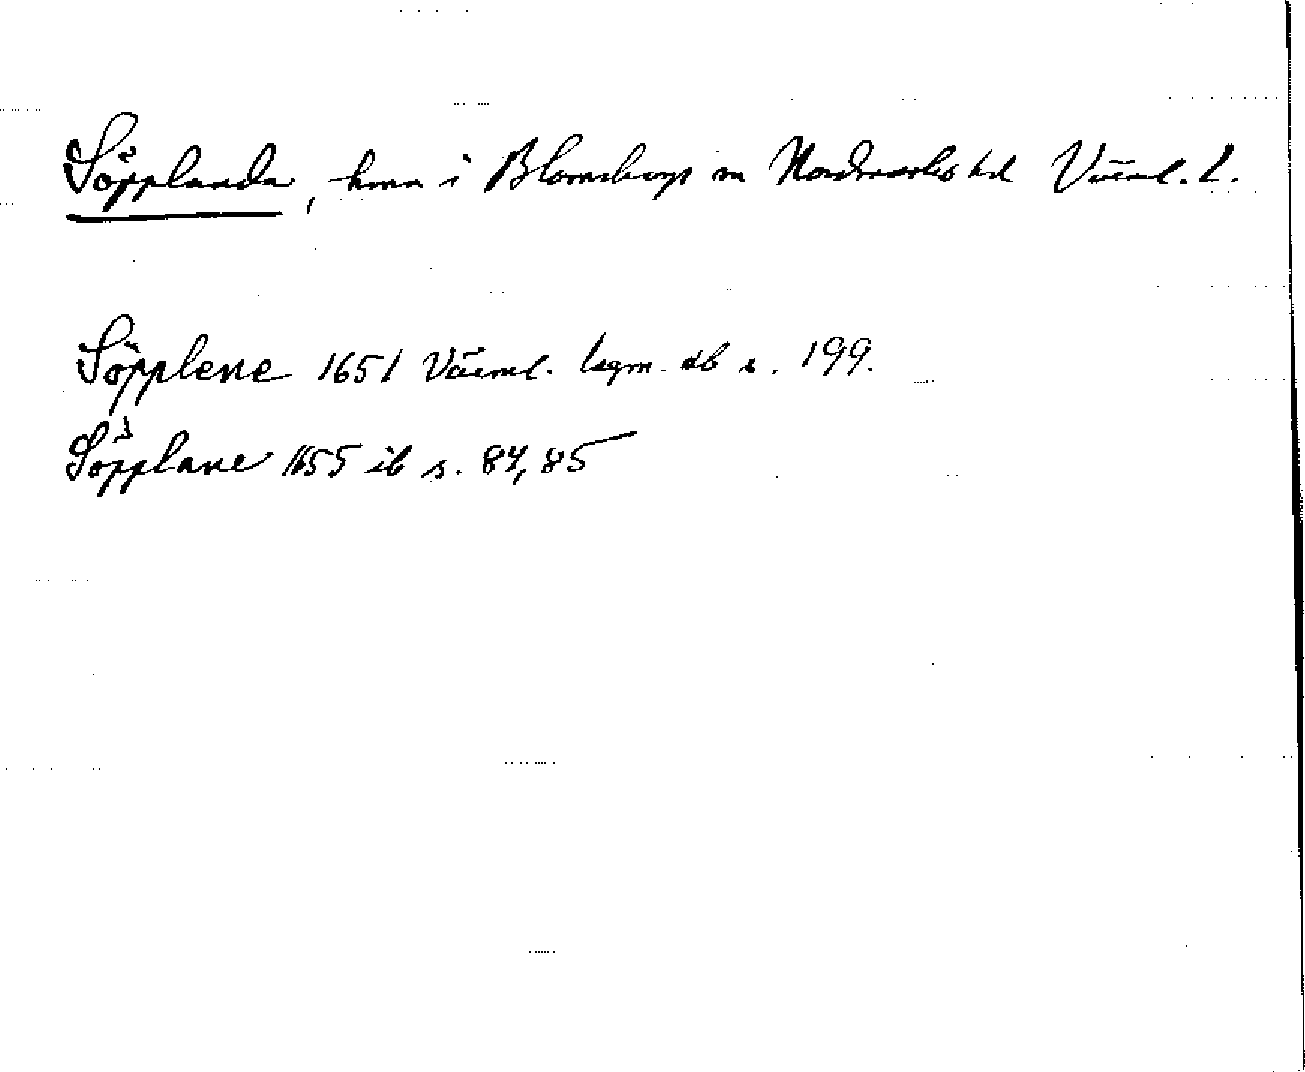 Söpplanda, hmn i Blomskogs sn Nordmarks hd Värml. l.
Söpplene 1651 Värml. lagm. db s. 199.
Söpplane 1655 ib s. 84, 85